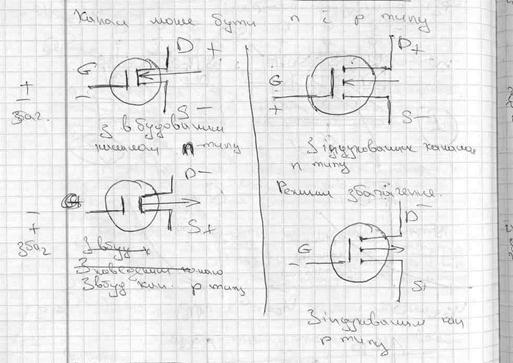 Канал може бути n і p типу
D +
G
−
S −
+
−
збаг.
З вбудованим
каналом n-типу
D +
G
+
S −
З індукованим каналом
n типу
D −
S +
−
+
збаг
З вбуд к
З наведеним канало
З вбуд кан. p типу
Режим збагачення.
D −
G
−
S+
З індукованим кан
p типу